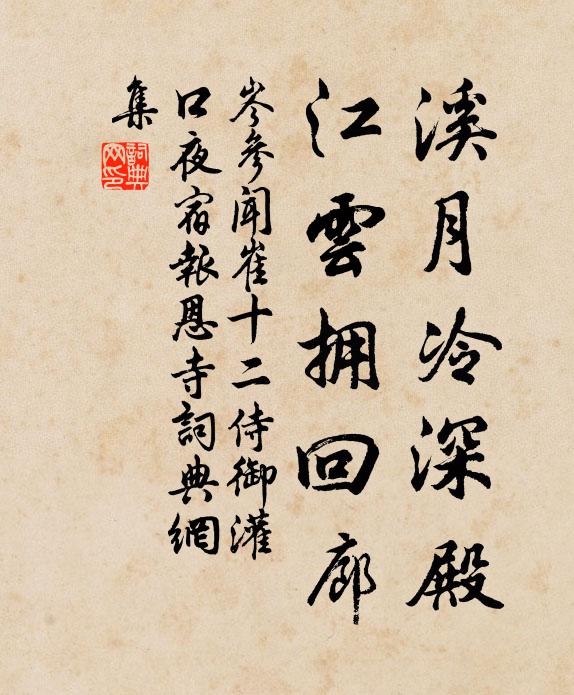 溪月冷深殿
江雲拥回廊
岑參聞崔十二侍御灌
口夜宿報恩寺詞典網
集
詞典
网印